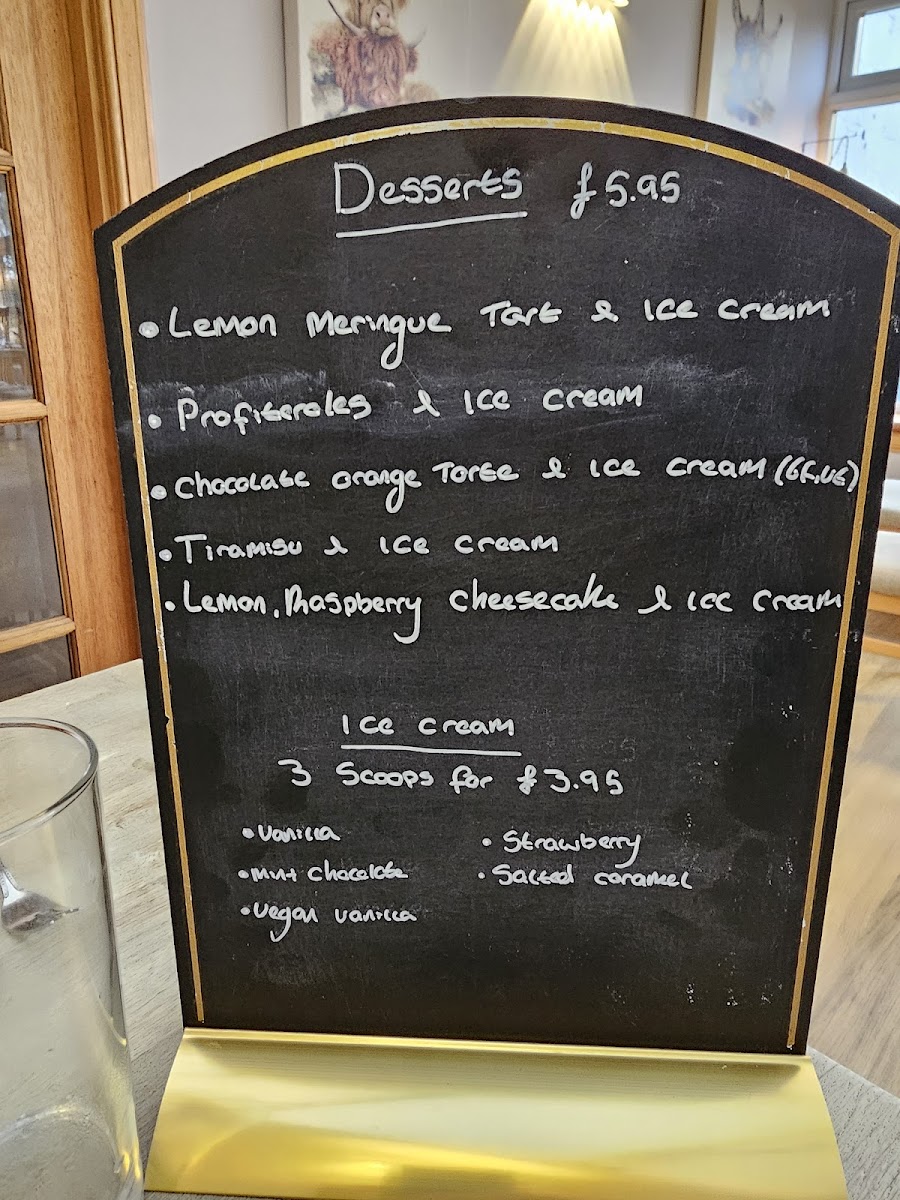 Desserts £5.95
• Lemon Meringue Tart & Ice cream
• Profiteroles & Ice cream
• Chocolate orange Torte & Ice cream (GF,VG)
• Tiramisu & Ice cream
• Lemon, Rhaspberry Cheesecake & ice cream
Ice cream
3 Scoops for £3.95
• Vanilla • Strawberry
• Mint Chocolate • Salted caramel
• Vegan vanilla